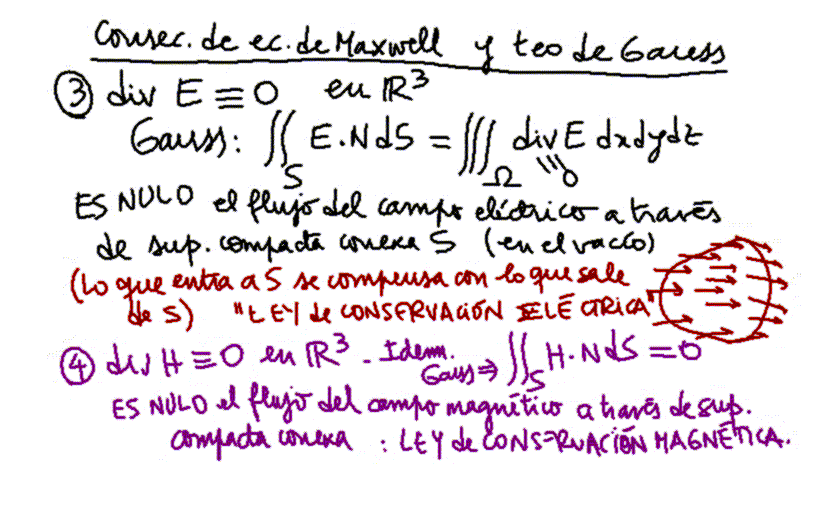 Consec. de ec. de Maxwell y teo de Gauss
③ div E ≡ 0 en ℝ³
Gauss: ∬_S E.N dS = ∭_Ω div E dxdydz
≡ 0
ES NULO el flujo del campo eléctrico a través
de sup. compacta conexa S (en el vacío)
(Lo que entra a S se compensa con lo que sale
de S) "LEY de CONSERVACIÓN ELÉCTRICA"
④ div H ≡ 0 en ℝ³. Idem. Gauss ⇒ ∬_S H.N dS = 0
ES NULO el flujo del campo magnético a través de sup.
compacta conexa : LEY de CONSERVACIÓN MAGNÉTICA.